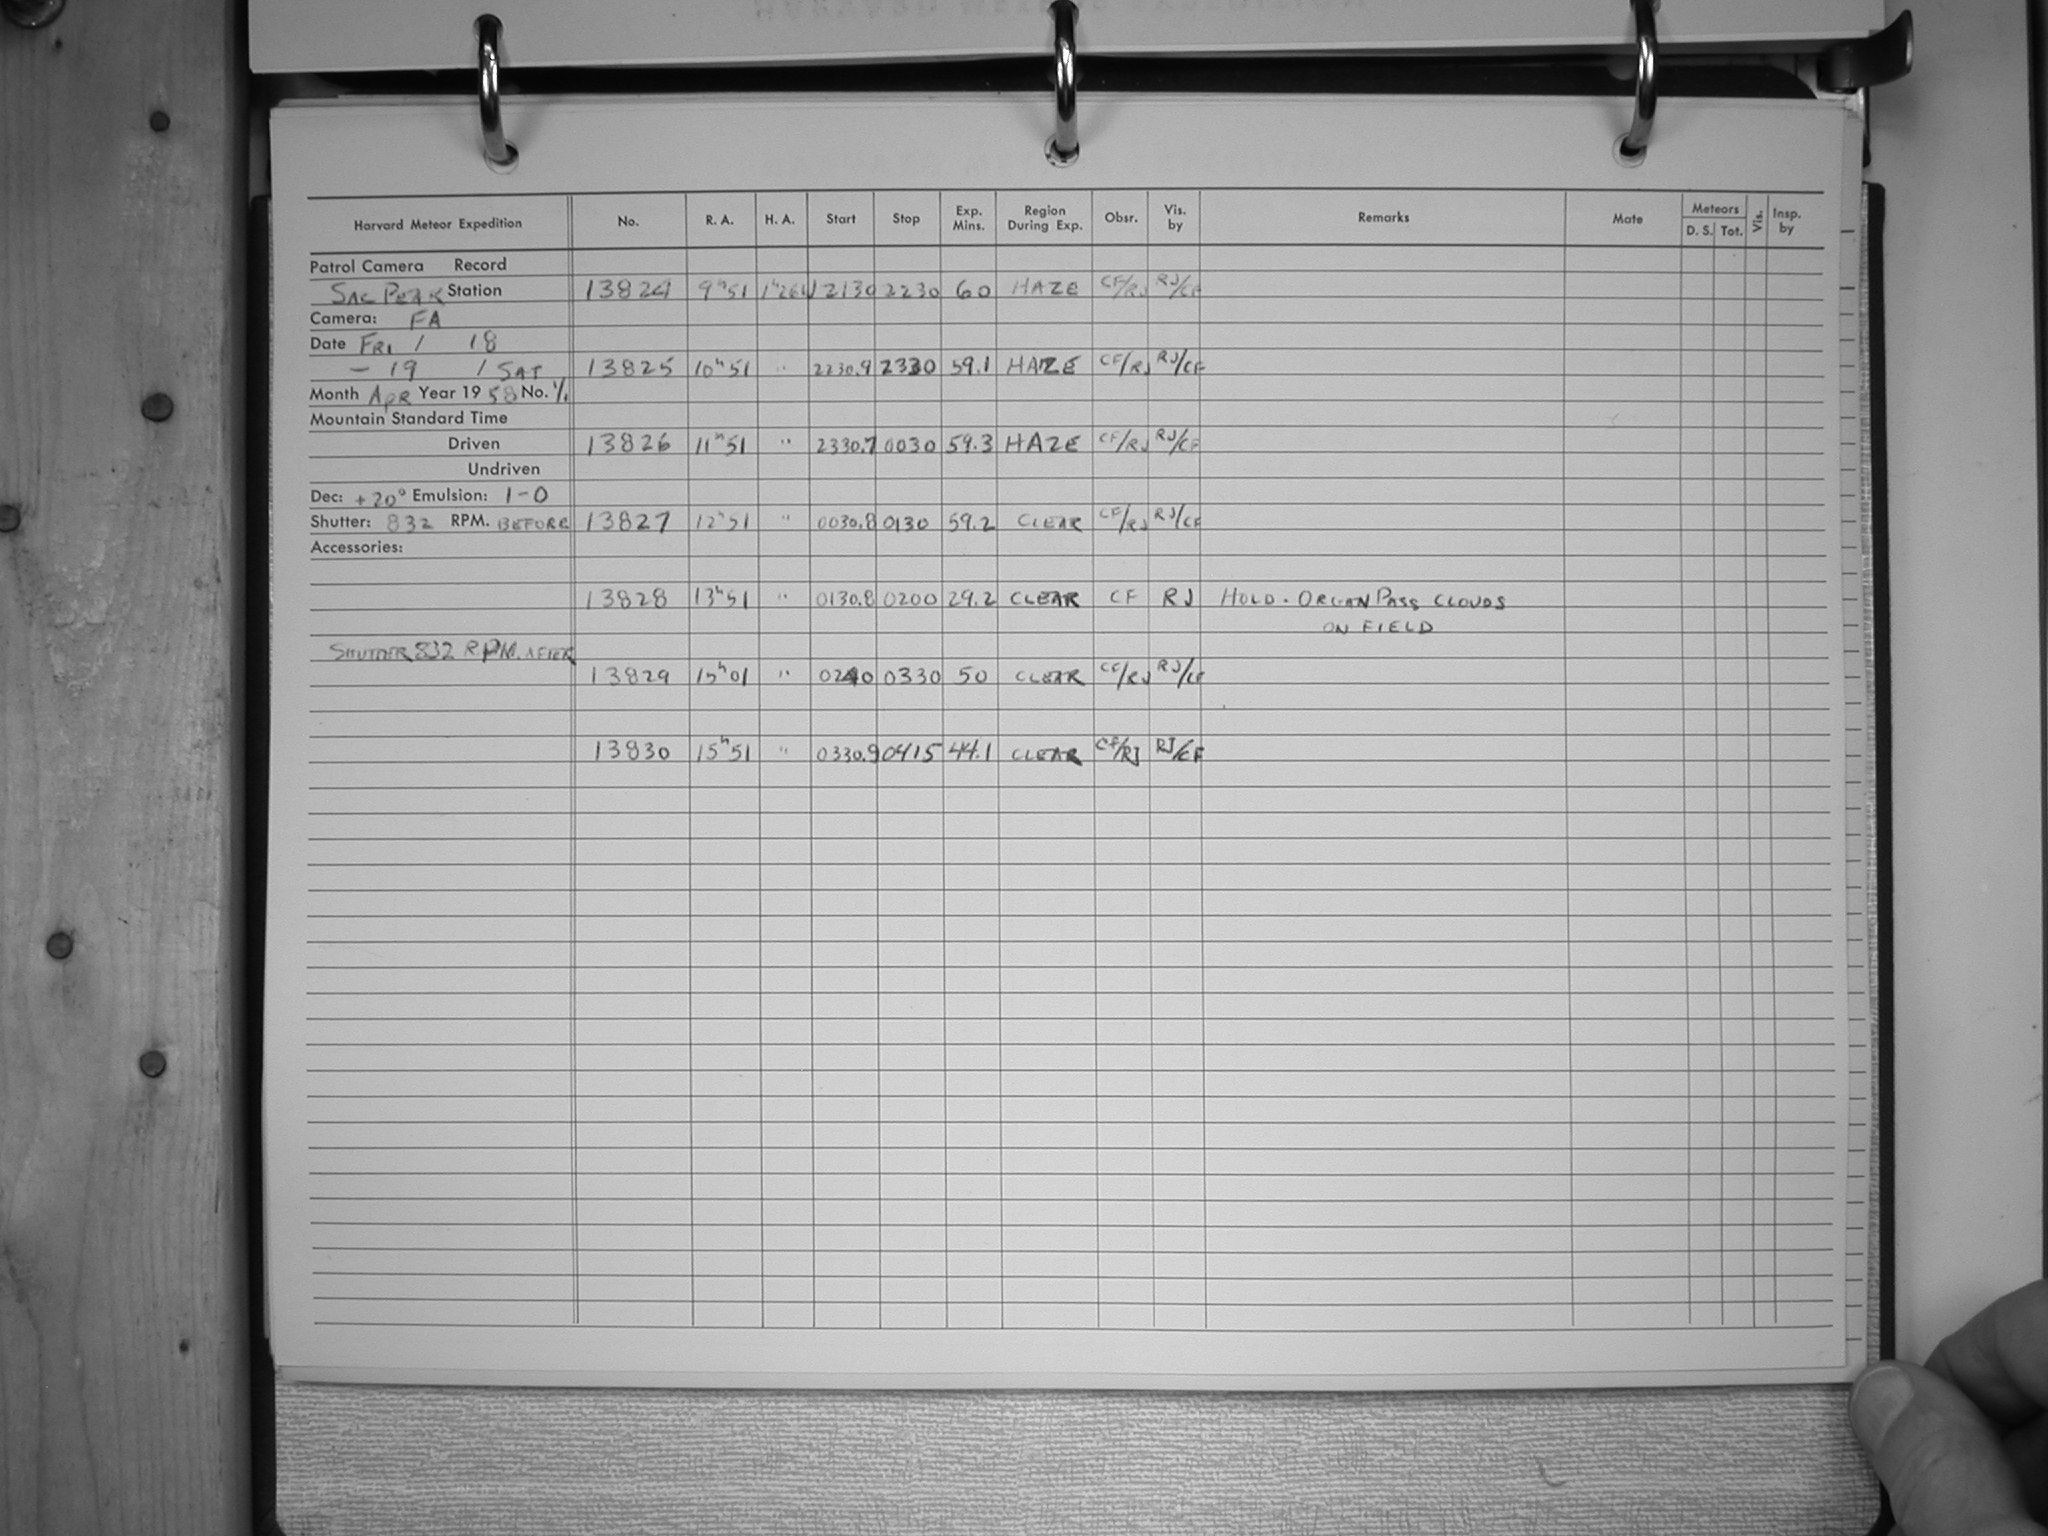 Harvard Meteor Expedition No. R. A. H. A. Start Stop Exp. Mins. Region During Exp. Obsr. Vis. by Remarks Mate Meteors D. S. Tot. Vis. Insp. by
Patrol Camera Record
SAC PEAK Station 13824 9h51 1h26W 2130 2230 60 HAZE CF/RJ RJ/CF
Camera: FA
Date FRI / 18
- 19 / SAT 13825 10h51 " 2230.9 2330 59.1 HAZE CF/RJ RJ/CF
Month APR Year 1958 No. 1/1
Mountain Standard Time
Driven 13826 11h51 " 2330.7 0030 59.3 HAZE CF/RJ RJ/CF
Undriven
Dec: +20° Emulsion: 1-0
Shutter: 832 RPM. BEFORE 13827 12h51 " 0030.8 0130 59.2 CLEAR CF/RJ RJ/CF
Accessories:
13828 13h51 " 0130.8 0200 29.2 CLEAR CF RJ HOLD - ORGAN PASS CLOUDS
ON FIELD
SHUTTER 832 RPM. AFTER
13829 15h01 " 0240 0330 50 CLEAR CF/RJ RJ/CF
13830 15h51 " 0330.9 0415 44.1 CLEAR CF/RJ RJ/CF